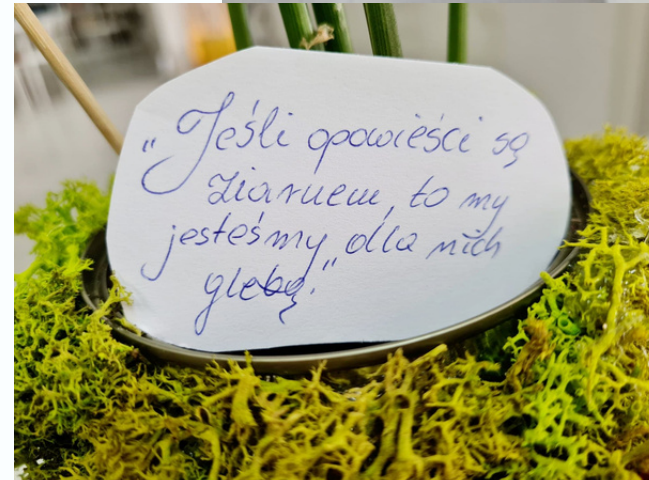 „Jeśli opowieści są
ziarnem, to my
jesteśmy dla nich
glebą."